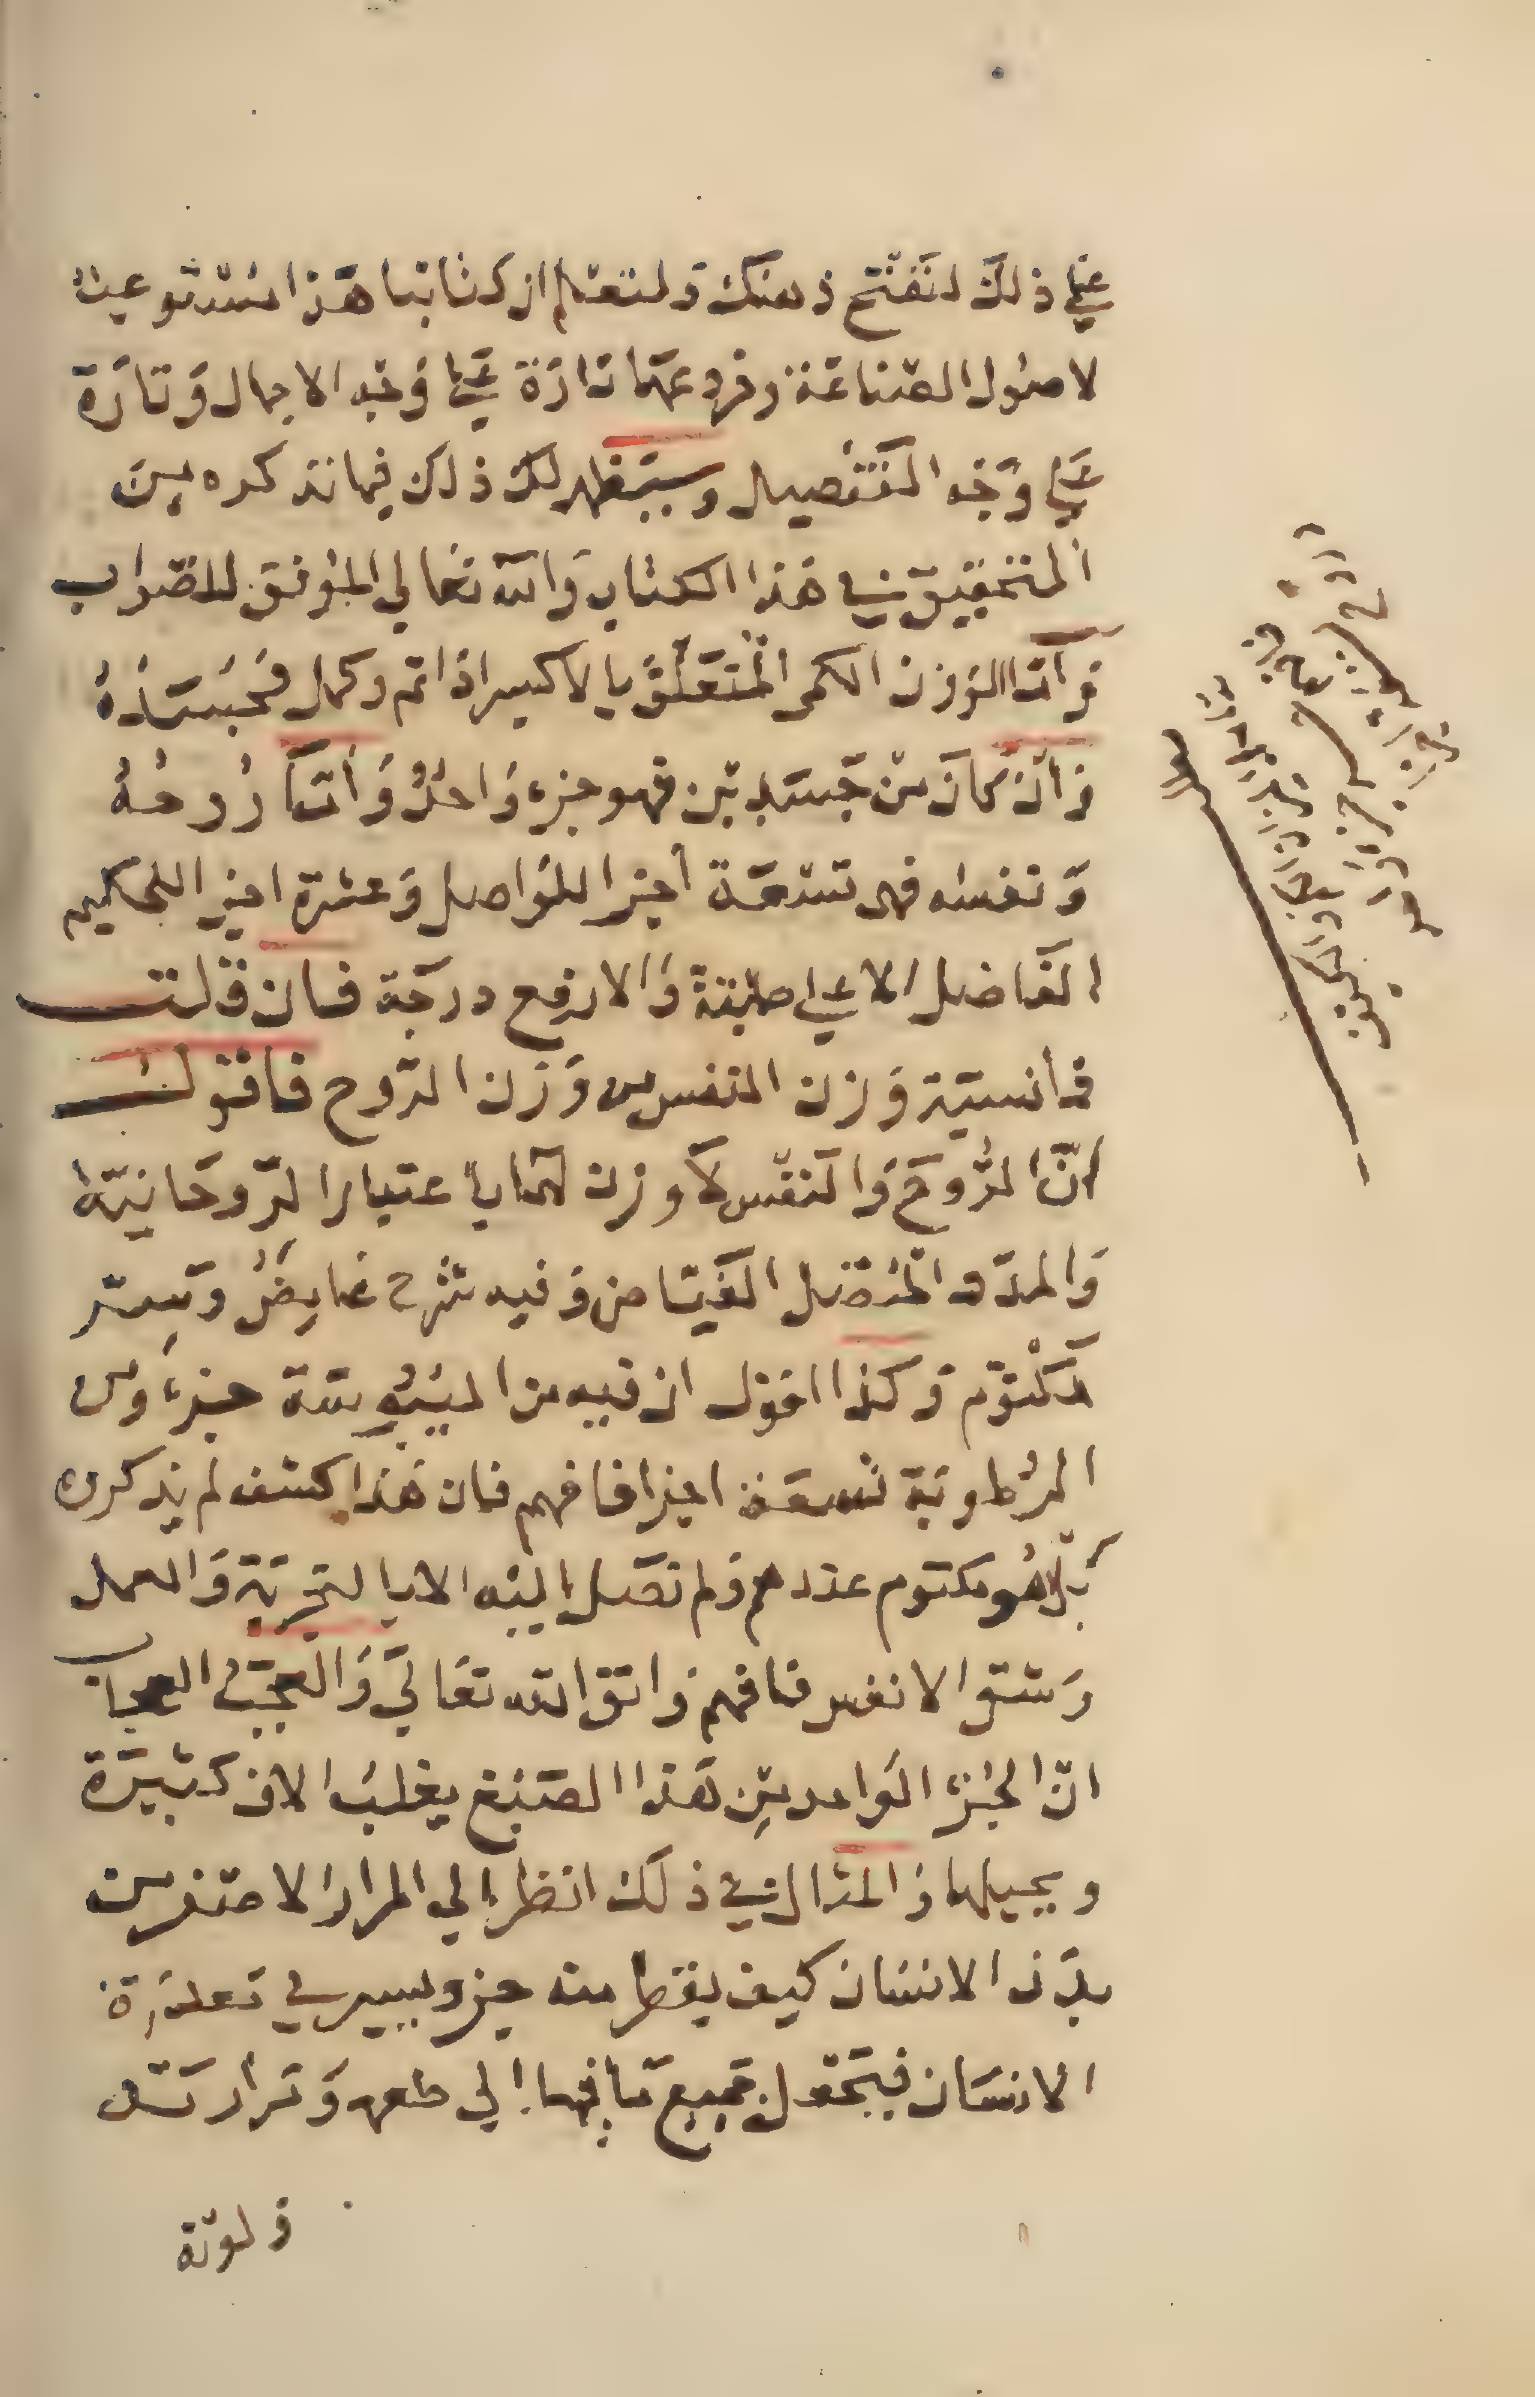 علي ذلك لنفتح ذهنك ولتعلم ان كتابنا هذا مستوعبا
لاصول الصناعة وفروعها تارة علي وجه الاجمال وتارة
علي وجه التفصيل وسيظهر لك ذلك فيما نذكره من
التحقيق في هذا الكتاب والله تعالي الموفق للصواب
واما الوزن الكمي المتعلق بالاكسير اذا تم وكمل فجسده
وان كان من جسدين فهو جزء واحد واما روحه
ونفسه فهي تسعة اجزا للواصل وعشرة اجزا للحكيم
الفاضل الاعلي طبقة والارفع درجة فان قلت
فما نسبة وزن النفس من وزن الروح فاقول
انّ الروح والنفس لا وزن لهما باعتبار الروحانية
والمدد المتصل الفياض وفيه شرح غامض وسر
مكتوم وكذا اقول ان فيه من اليبوسة جزء ومن
الرطوبة تسعة اجزا فافهم فان هذا كشف لم يذكروه
بل هو مكتوم عندهم ولم نصل اليه الا بالتجربة والعمل
وشق الانفس فافهم واتق الله تعالي والعجب العجاب
انّ الجزء الواحد من هذا الصبغ يغلب الاف كثيرة
ويحيلها والمثال في ذلك انظر الي المرار الاصفر من
بدن الانسان كيف يقطر منه جزو يسير في معدة
الانسان فيتحول جميع ما فيها الي طعمه ومرارته
ولونه